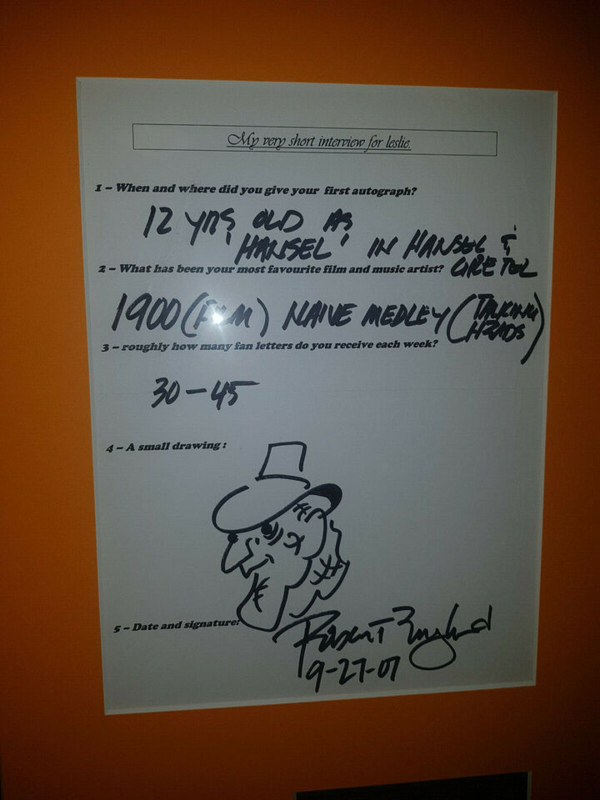 My very short interview for leslie.
1 – When and where did you give your first autograph?
12 YRS OLD AS
'HANSEL' IN HANSEL &
GRETEL
2 – What has been your most favourite film and music artist?
1900 (FILM) NAIVE MEDLEY (TALKING
HEADS)
3 – roughly how many fan letters do you receive each week?
30 – 45
4 – A small drawing :
5 – Date and signature:
Robert Englund
9-27-07